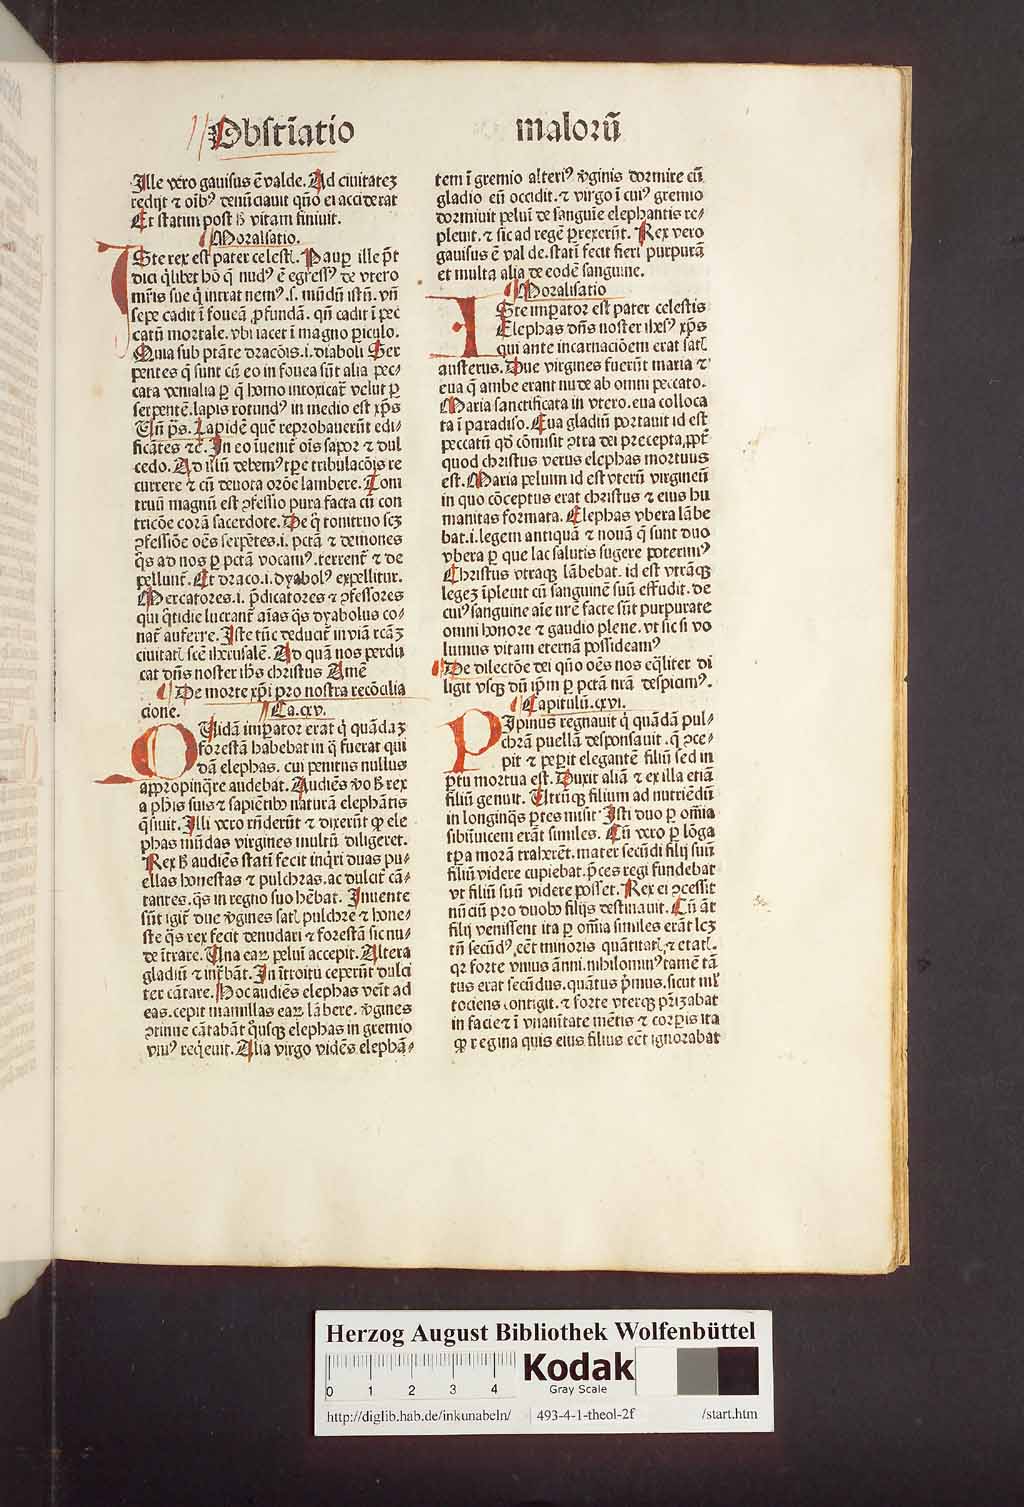 Obstr̄atio malorū
Ille vero gauisus ē valde. Ad ciuitateʒ
redijt ⁊ oībꝰ denūciauit qn̄o ei acciderat
Et statim post ħ vitam finiuit.
Moralisatio.
ISte rex est pater celestꝭ. Pauꝑ ille pōt
dici q̄libet hō q̄ nudꝰ ē egressꝰ de vtero
mr̄is sue q̄ intrat nemꝰ .s. mūdū istū. vn̄
sepe cadit ī foueā ꝓfundā. qn̄ cadit ī pec
catū mortale. vbi iacet ī magno ꝑiculo.
Quia sub ptāte dracōis .i. diaboli Ser
pentes q̄ sunt cū eo in fouea sūt alia pec⸗
cata venialia ꝑ q̄ homo intoxicat̄ velut ꝑ
serpentē. lapis rotundꝰ in medio est xp̄s
Vn̄ ps̄. Lapidē quē reprobauerūt edi⸗
ficātes ⁊c̄. In eo īuenit̄ ois̄ sapor ⁊ dul
cedo. Ad illū debemꝰ tp̄e tribulacōis re
currere ⁊ cū deuota orōne lambere. Toni
truū magnū est ꝯfessio pura facta cū con
tricōe corā sacerdote. De q̄ tonitruo scʒ
ꝯfessiōe oēs serpētes .i. pctā ⁊ demones
q̄s ad nos ꝑ pctā vocamꝰ. terrent̄ ⁊ de
pellunt̄. Et draco .i. dyabolꝰ expellitur.
Mercatores .i. p̄dicatores ⁊ ꝯfessores
qui q̄tidie lucrant̄ aīas q̄s dyabolus co⸗
nat̄ auferre. Iste tūc deducit̄ in viā rcāʒ
ciuitatꝭ scē iherusalē. Ad quā nos perdu
cat dn̄s noster ihs̄ christus Amē
De morte xp̄i pro nostra recōcilia
cione. Ca.cxv.
QUidā imꝑator erat q̇ quādaʒ
forestā habebat in q̄ fuerat qui
dā elephas. cui penitus nullus
appropinq̄re audebat. Audiēs v̄o ħ rex
a ph̄is suis ⁊ sapiētibꝰ naturā elephātis
q̄siuit. Illi vero rn̄derūt ⁊ dixerūt ꝙ ele
phas mūdas virgines multū diligeret.
Rex ħ audiēs statī fecit inq̇ri duas pu⸗
ellas honestas ⁊ pulchras. ac dulcit̄ cā⸗
tantes. q̄s in regno suo hēbat. Inuente
sūt igit̄ due v̄gines satꝭ pulchre ⁊ hone⸗
ste q̄s rex fecit denudari ⁊ forestā sic nu⸗
de ītrare. Una eaꝝ peluī accepit. Altera
gladiū ⁊ intrabāt. In ītroitu ceperūt dulci
ter cātare. Hoc audiēs elephas venit ad
eas. cepit mamillas eaꝝ lābere. v̄gines
ꝯtinue cātabāt q̊usqꝫ elephas in gremio
vniꝰ req̇euit. Alia virgo vidēs elephā⸗
tem ī gremio alteriꝰ v̄ginis dormire cū
gladio eū occidit. ⁊ virgo ī cuiꝰ gremio
dormiuit peluī de sanguīe elephantis re⸗
pleuit. ⁊ sic ad regē ꝑrexerūt. Rex vero
gauisus ē val de. statī fecit fieri purpurā
et multa alia de eodē sanguine.
Moralisatio
ISte imꝑator est pater celestis
Elephas dn̄s noster ihesꝰ xp̄s
qui ante incarnaciōem erat satꝭ
austerus. Due virgines fuerūt maria ⁊
eua q̄ ambe erant nude ab omni peccato.
Maria sanctificata in vtero. eua colloca
ta ī paradiso. Eua gladiū portauit id est
peccatū qd̄ cōmisit ꝯtra dei precepta, ꝓpt̄
quod christus verus elephas mortuus
est. Maria peluim id est vterū virgineū
in quo cōceptus erat christus ⁊ eius hu
manitas formata. Elephas vbera lābe
bat .i. legem antiquā ⁊ nouā q̄ sunt duo
vbera ꝑ que lac salutis sugere poterimꝰ
Christus vtraqꝫ lābebat. id est vtrāqꝫ
legeʒ īpleuit cū sanguinē suū effudit. de
cuiꝰ sanguine aīe nrē facte sūt purpurate
omni honore ⁊ gaudio plene. vt sic si vo
lumus vitam eternā possideamꝰ
De dilectōe dei qn̄o oēs nos eq̄liter di
ligit vsqꝫ dū ip̄m ꝑ pctā nrā despicimꝰ.
Capitulū.cxvi.
PIpinus regnauit q̇ quādā pul⸗
chrā puellā desponsauit. q̄ ꝯce⸗
pit ⁊ peꝑit elegantē filiū sed in
ꝑtu mortua est. Duxit aliā ⁊ ex illa etiā
filiū genuit. Utrūqꝫ filium ad nutriēdū
in longinq̄s ꝑtes misit Isti duo ꝑ om̄ia
sibiīuicem erāt similes. Cū vero ꝑ lōga
tꝑa morā traherēt. mater secūdi filij suū
filiū videre cupiebat. p̄ces regi fundebat
vt filiū suū videre posset. Rex ei ꝯcessit
nūciū pro duobꝰ filijs destinauit. Cū āt
filij venissent ita ꝑ om̄ia similes erāt lcʒ
tn̄ secūdꝰ eēt minoris quātitatꝭ ⁊ etatꝭ.
qꝛ forte vnius āni. nihilominꝰ tamē tā
tus erat secūdus. quātus p̄mus. sicut ml̄
tociens ꝯontigit. ⁊ forte vterqꝫ pr̄izabat
in facie ⁊ ī vnanītate mētis ⁊ corꝑis ita
ꝙ regina quis eius filius eēt ignorabat
Herzog August Bibliothek Wolfenbüttel
0 1 2 3 4
Kodak
Gray Scale
http://diglib.hab.de/inkunabeln/ 493-4-1-theol-2f /start.htm